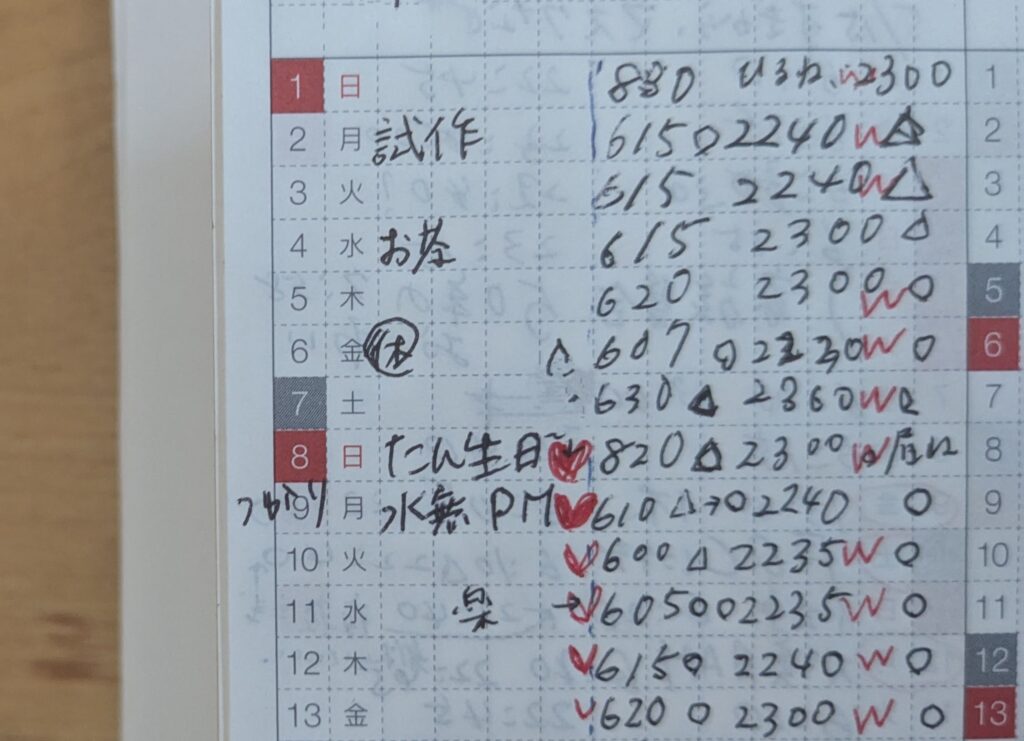 1 日 830 ひるね W 2300 1
2 月 試作 615 ○ 2240 W △ 2
3 火 615 2240 W △ 3
4 水 お茶 615 2300 △ 4
5 木 620 2300 W ○ 5
6 金 休 △ 607 ○ 2230 W ○ 6
7 土 630 △ 2300 W 7
8 日 たん生日 ♥ 820 △ 2300 W 8
9 月 水無 PM ♥ 610 △→○ 2240 ○ 9
10 火 600 △ 2235 W ○ 10
11 水 楽 → 605 ○ ○ 2235 W ○ 11
12 木 615 ○ 2240 W ○ 12
13 金 620 ○ 2300 W ○ 13